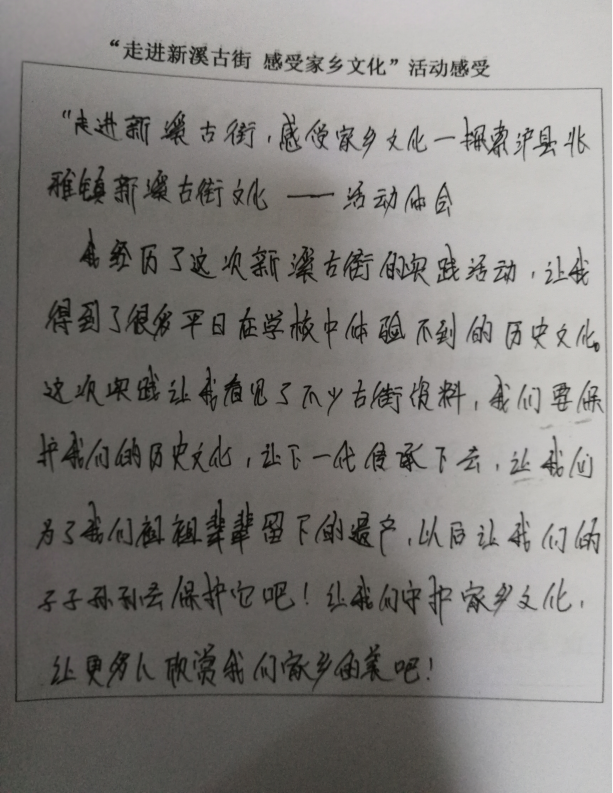 “走进新溪古街 感受家乡文化”活动感受
“走进新溪古街，感受家乡文化—探索泸县兆
雅镇新溪古街文化 ——活动体会
我经历了这次新溪古街的实践活动，让我
得到了很多平日在学校中体验不到的历史文化。
这次实践让我看见了不少古街资料，我们要保
护我们的历史文化，让下一代传承下去，让我们
为了我们祖祖辈辈留下的遗产，以后让我们的
子子孙孙去保护它吧！让我们守护家乡文化，
让更多人欣赏我们家乡的美吧！